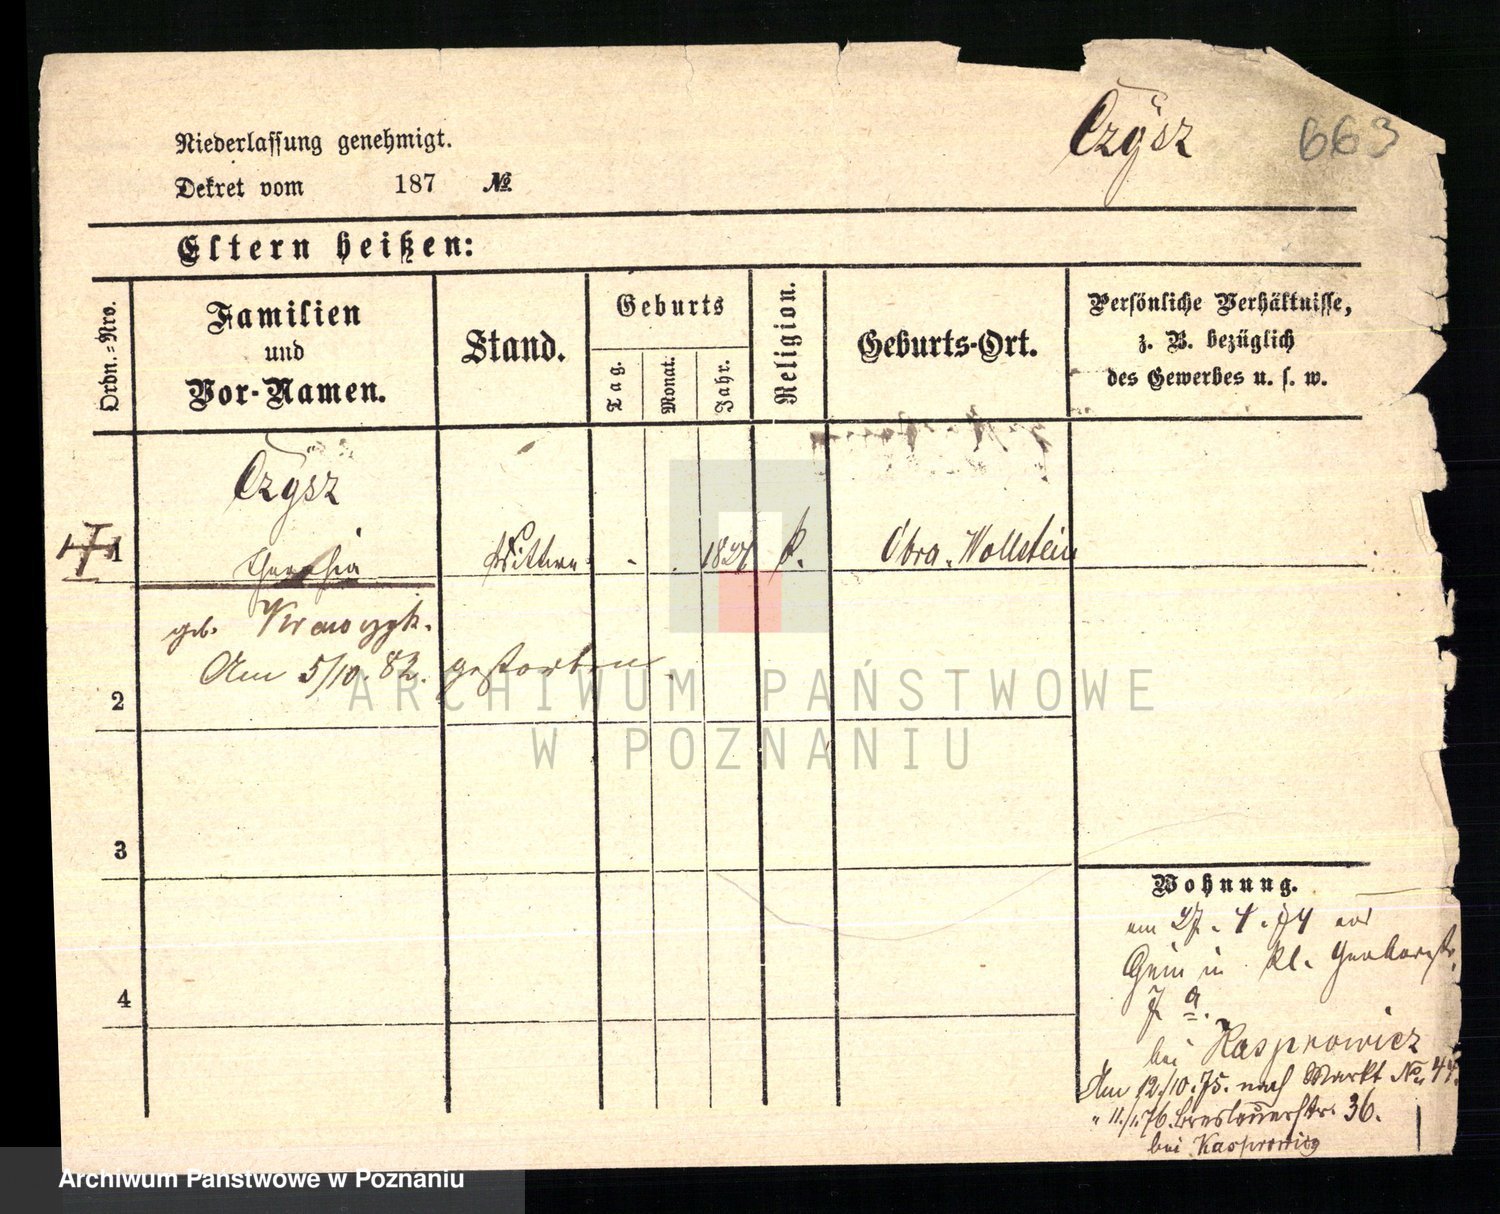 Czÿsz 663
Niederlassung genehmigt.
Dekret vom 187 №
Eltern heißen:
Ordn.=Nro.
Familien
und
Vor-Namen.
Stand.
Geburts
Tag.
Monat.
Jahr.
Religion.
Geburts-Ort.
Persönliche Verhältnisse,
z. B. bezüglich
des Gewerbes u. s. w.
Czÿsz
1 Theresia Wittwe - . 1827 k. Obra. Wollstein
geb. Krawczyk.
Am 5/10. 82. gestorben.
2
3
4
Wohnung.
am 27. 4. 74
in kl. Gerberstr.
7 a.
bei Kasprowicz
Am 12/10. 75. nach Markt No 47.
" 11/1. 76. Breslauerstr. 36.
bei Kasprowicz
ARCHIWUM PAŃSTWOWE
W POZNANIU
Archiwum Państwowe w Poznaniu